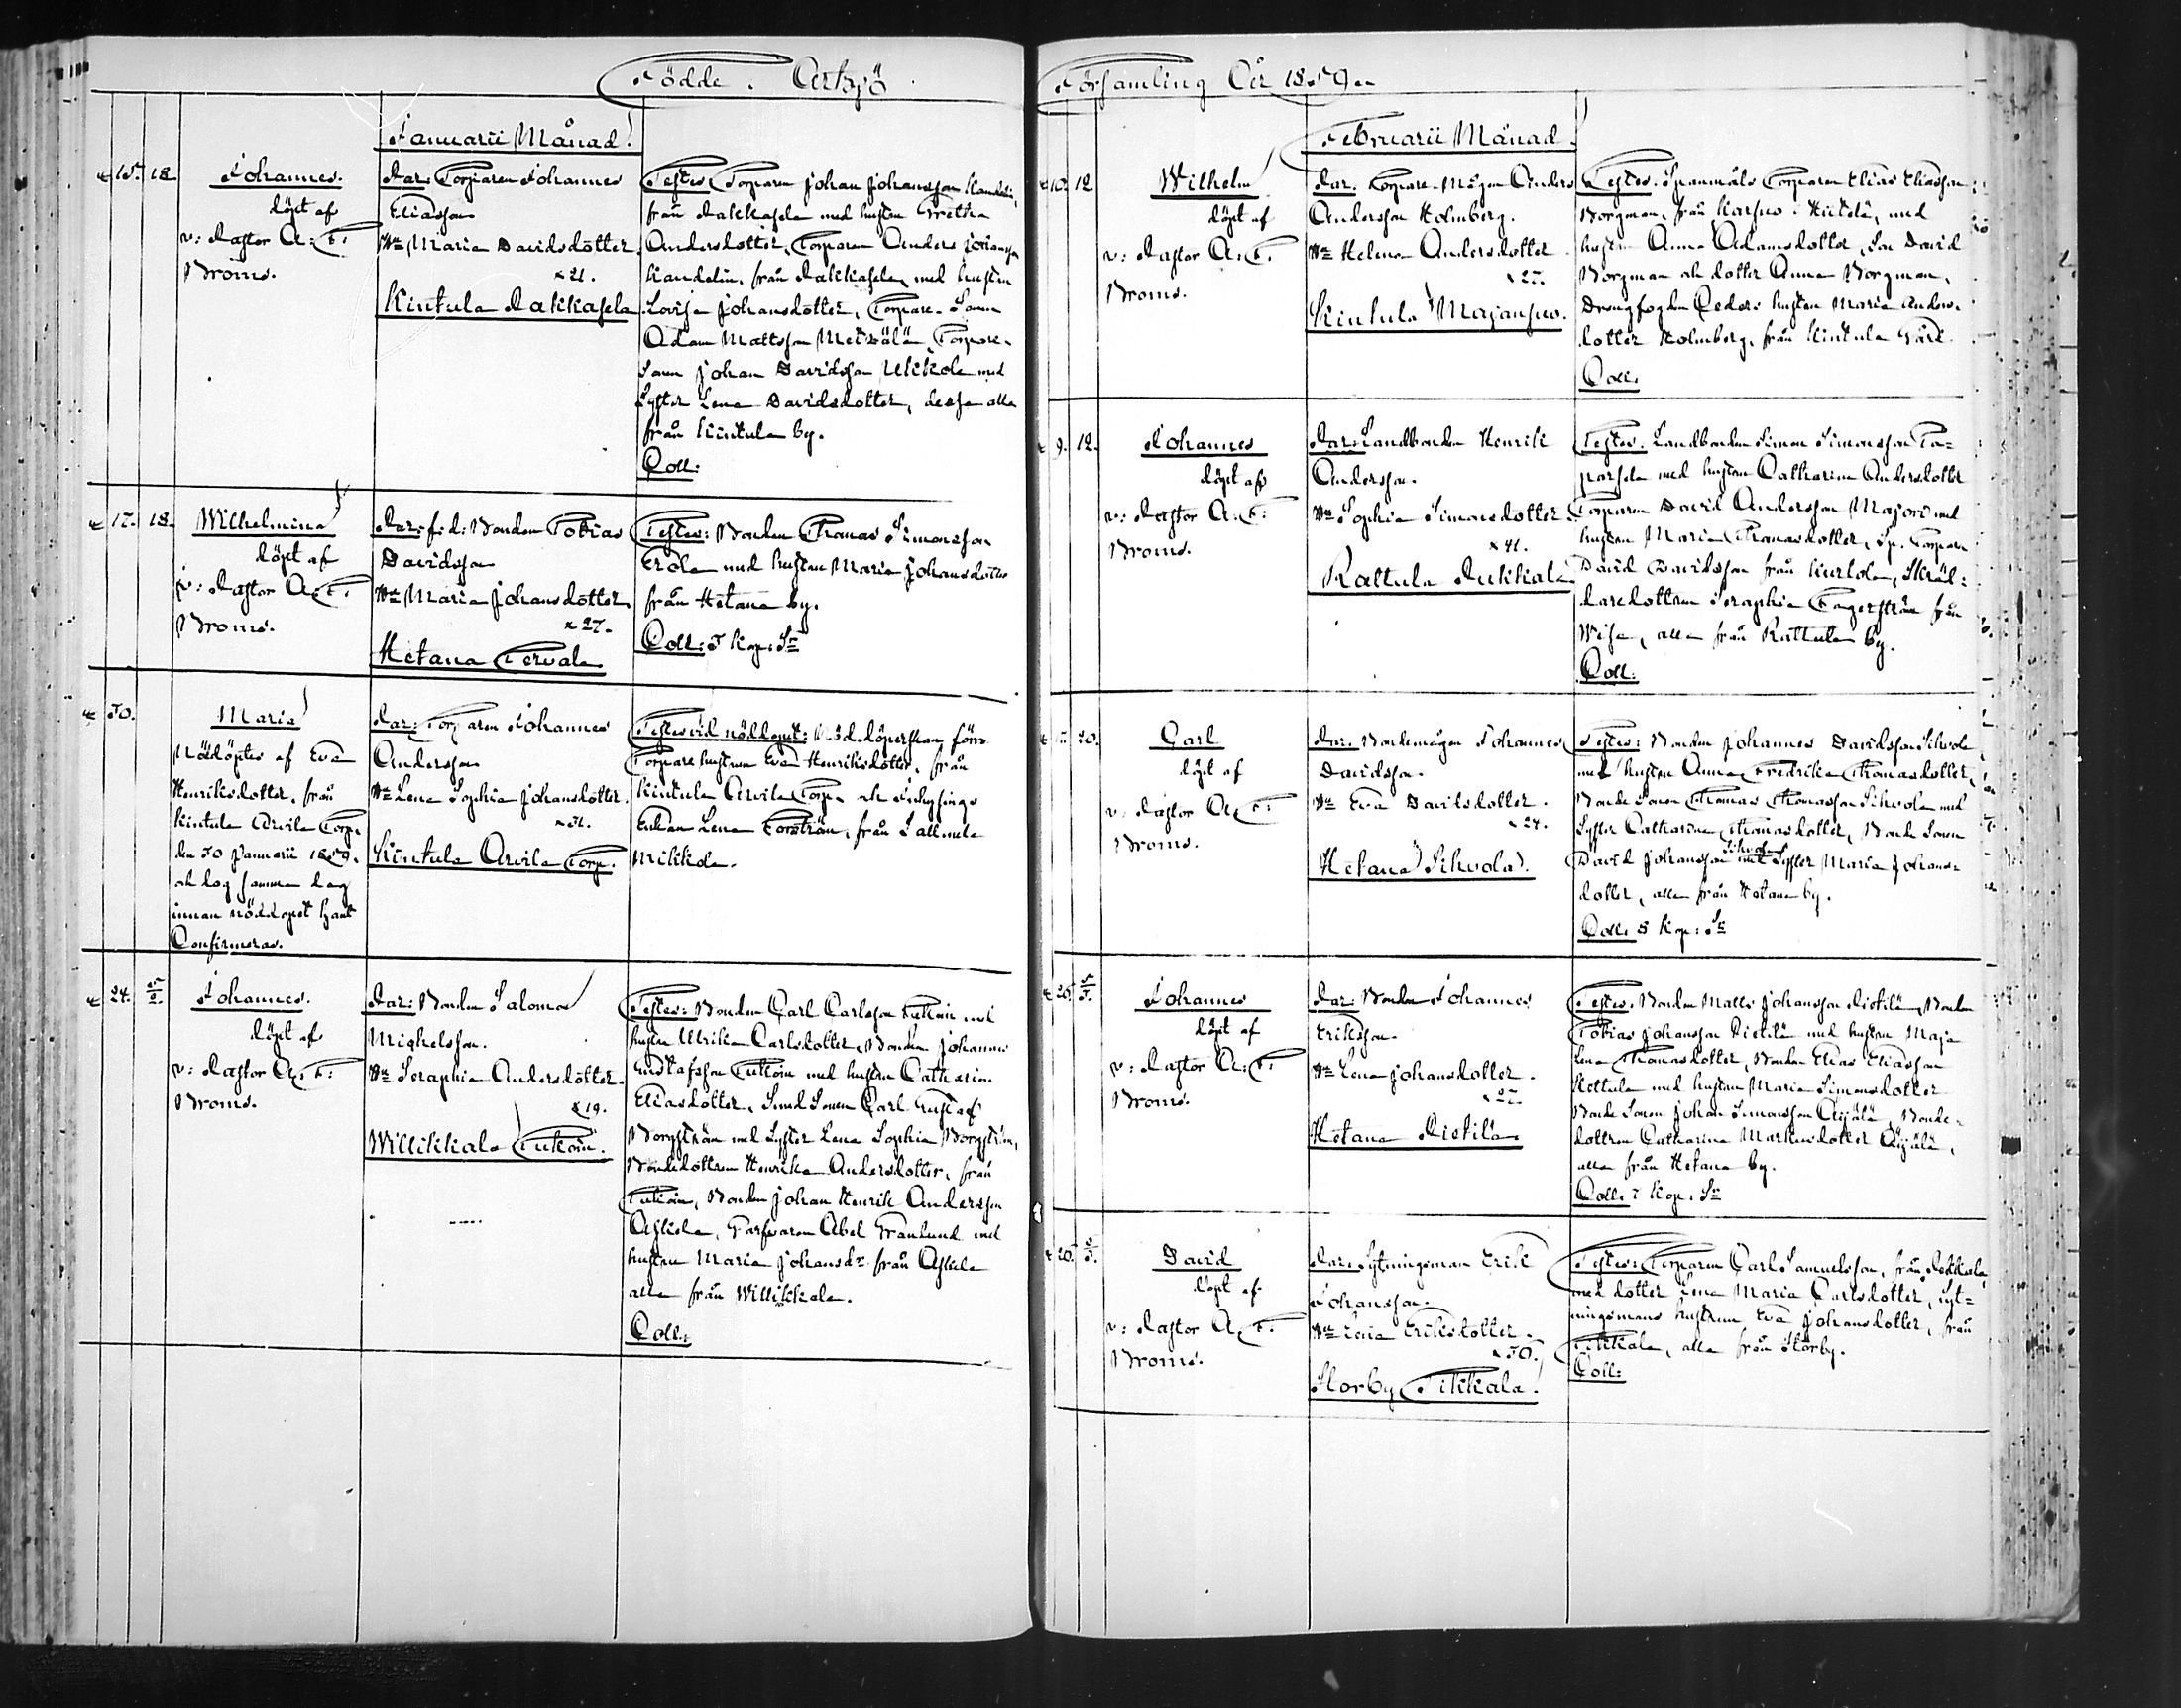 Födde. Artsjö
Januarii Månad.
15. 18.
Johannes.
döpt af
v: Pastor A: F:
Broms.
Par: Torparen Johannes
Eliasson
Maria Davidsdotter
21.
Kintula Pakkasela
Testes: Torparen Johan Johansson
från Pakkasela med hustru Gretha
Andersdotter, Torparen Anders
från Pakkasela med hustru
Lovisa Johansdotter, Torpare-Sonen
Adam Mattsson Metzälä, Torpare-
Sonen Johan Davidsson Ukkola med
Syster Lena Davidsdotter, dessa alla
från Kintula by.
Coll:
17. 18.
Wilhelmina
döpt af
v: Pastor A: F:
Broms.
Par: f. d. Bonden Tobias
Davidsson
Maria Johansdotter.
27.
Hetana Tervala
Testes: Bonden Thomas Simonsson
Erola med hustru Maria Johansdotter
från Hetana by.
Coll: 3 Kop: Sr
30.
Maria
Nöddöptes af Eva
Henriksdotter, från
Kintula Arvila Torp.
den 30 Januarii 1859.
och dog samma dag
innan nöddopet hant
Confirmeras.
Par: Torparen Johannes
Andersson
Lena Sophia Johansdotter.
31.
Kintula Arvila Torp.
Testes vid nöddopet: Nöddöperskan förre
Torpare hustrun Eva Henriksdotter, från
Kintula Arvila Torp, och Inhysings
Enkan Lena Forström, från Sallmela
Mikkola.
24. 5/2.
Johannes.
döpt af
v: Pastor A: F:
Broms.
Par: Bonden Salomon
Michelsson.
Seraphia Andersdotter.
19.
Willikkala Tuttoin.
Testes: Bonden Carl Carlsson Tuttoin med
hustru Ulrika Carlsdotter, Bonden Johannes
Gustafsson Tuttoin med hustru Catharina
Eliasdotter, Smed Sonen Carl Gustaf
Borgström med Syster Lena Sophia Borgström,
Bondedottren Henrika Andersdotter, från
Tuttoin, Bonden Johan Henrik Andersson
Garfvaren Abel Granlund med
hustru Maria Johansdr från
alla från Willikkala.
Coll:
Församling År 1859.
Februarii Månad.
10. 12.
Wilhelm
döpt af
v: Pastor A: F.
Broms.
Par. Torpare-Mågen Anders
Andersson Holmberg.
Helena Andersdotter
27.
Kintula Majansuo.
Testes: Spanmåls Torparen Elias Eliasson
Borgman, från Karsuo. med
hustru Anna Adamsdotter, Son David
Borgman och dotter Anna Borgman,
Drengfogden Ceders hustru Maria Anders-
dotter Holmberg, från Kintula Gård.
Coll:
9. 12.
Johannes
döpt af
v: Pastor A. F:
Broms.
Par: Landbonden Henrik
Andersson.
Sophia Simonsdotter.
41.
Rattula Pukkala
Testes. Landbonden Simon Simonsson
med hustru Catharina Andersdotter
Torparen David Andersson Majori med
hustru Maria Thomasdotter,
David Davidsson från Kurlola, Skräd-
daredottren Seraphia Fagerström från
alla från Rattula by.
Coll:
20.
Carl
döpt af
v: Pastor A. F:
Broms.
Par. Bondemågen Johannes
Davidsson.
Eva Davidsdotter.
24.
Hetana Sihvola.
Testes: Bonden Johannes Davidsson Sihvola
med hustru Anna Fredrika Thomasdotter,
Bonde Sonen Thomas Thomasson Sihvola med
Syster Catharina Thomasdotter, Bonde Sonen
David Johansson Sihvola med Syster Maria Johans-
dotter, alla från Hetana by.
Coll: 5 Kop: Sr
26. 5/3.
Johannes
döpt af
v: Pastor A: F:
Broms.
Par: Bonden Johannes
Eriksson.
Lena Johansdotter.
27.
Hetana Pietilä
Testes. Bonden Matts Johansson Pietilä, Bonden
Tobias Johansson Pietilä med hustru Maja
Lena Thomasdotter, Bonden Elias Eliasson
Kettula med hustru Maria Simonsdotter
Bonde Sonen Johan Simonsson Äijälä, Bonde-
dottren Catharina Markusdotter Äijälä,
alla från Hetana by.
Coll: 7 Kop. Sr
26. 5/3.
David
döpt af
v: Pastor A. F.
Broms.
Par: Sytningsman Erik
Johansson.
Lena Eriksdotter.
30.
Storby Tikkala.
Testes: Torparen Carl Samuelsson, från Pekkala
med dotter Lena Maria Carlsdotter, Syt-
ningsmans hustrun Eva Johansdotter, från
Tikkala, alla från Storby.
Coll: